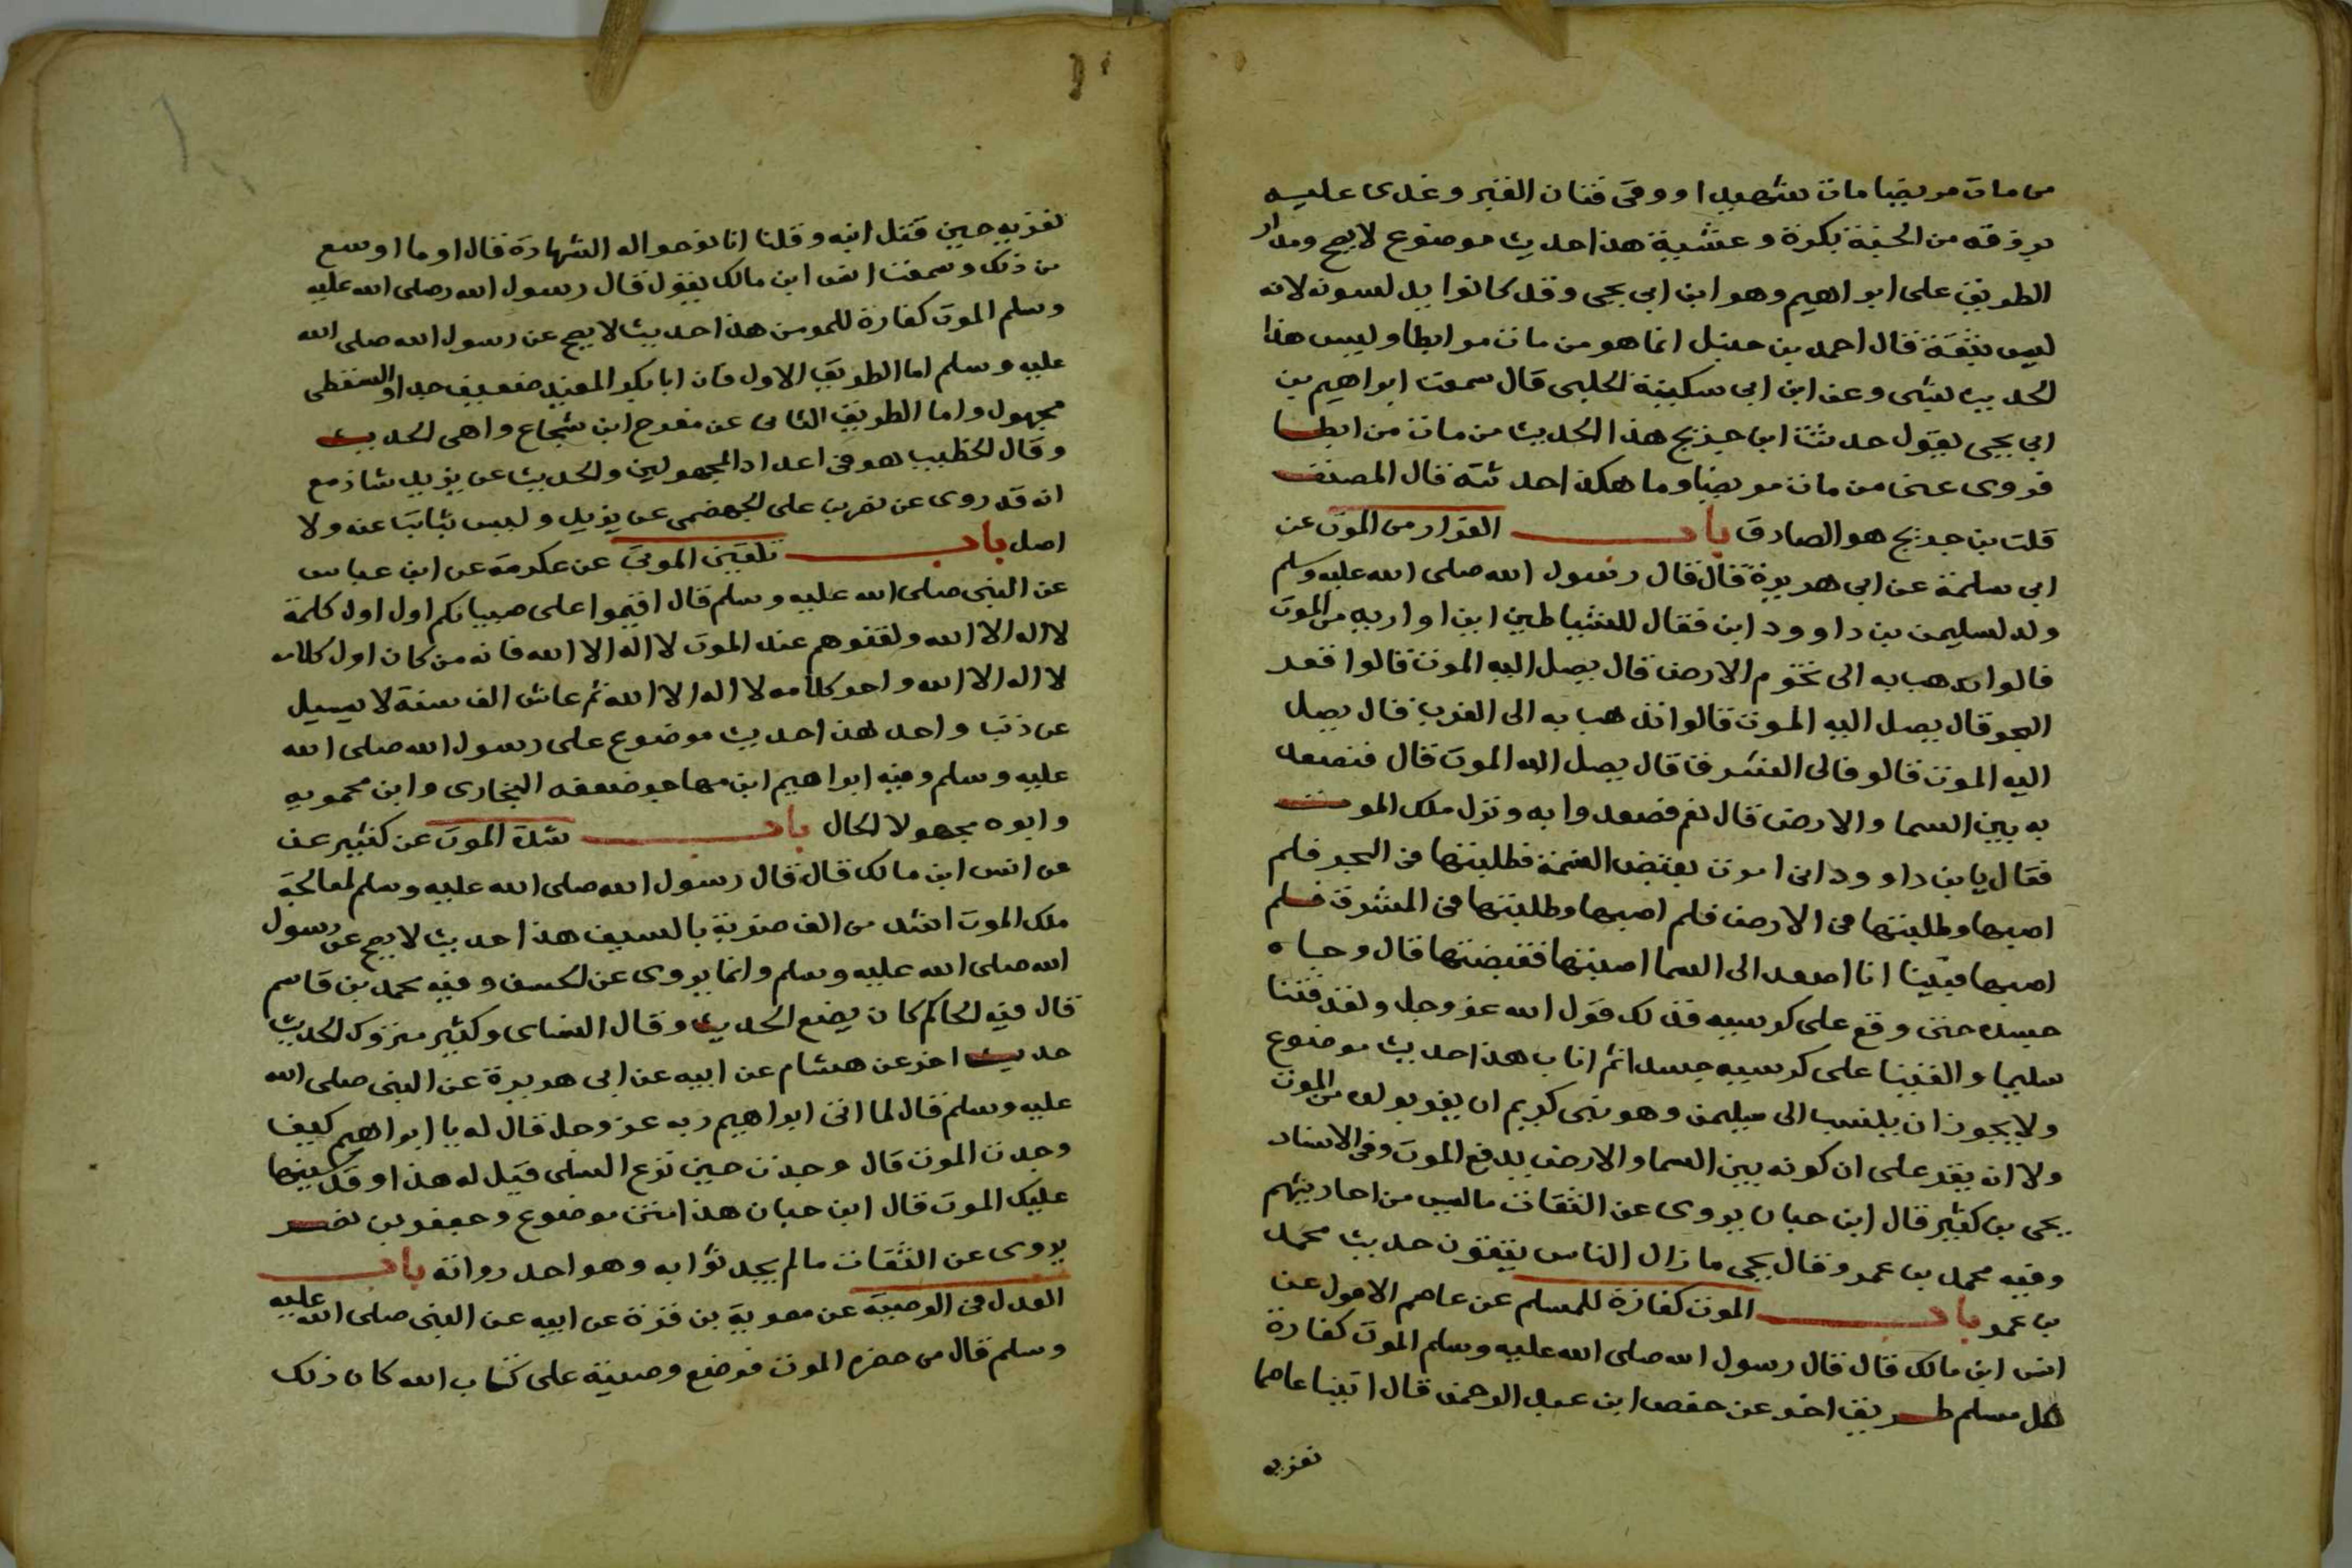 من مات مريضا مات شهيدا ووقي فتان القبر وغدى عليه
برزقه من الجنة بكرة وعشية هذا حديث موضوع لا يصح ومدار
الطريق على ابراهيم وهو ابن ابي يحيى وقد كانوا يدلسونه لانه
ليس بثقة قال احمد بن حنبل انما هو من مات مرابطا وليس هذا
الحديث بشي وعن ابن ابي سكينة الحلبي قال سمعت ابراهيم بن
ابي يحيى يقول حدثت ابن جريج هذا الحديث من مات مرابطا
فروى عني من مات مريضا وما هكذا حدثته قال المصنف
قلت بن جريج هو الصادق باب الفرار من الموت عن
ابي سلمة عن ابي هريرة قال قال رسول الله صلى الله عليه وسلم
ولد لسليمن بن داوود ابن فقال للشياطين اين اواريه من الموت
قالوا اذهب به الى تخوم الارض قال يصل اليه الموت قالوا فقعر
البحر قال يصل اليه الموت قالوا نذهب به الى الغرب قال يصل
اليه الموت قالو فالى الشرق قال يصل اليه الموت قال فنصعد
به بين السما والارض قال نعم فصعدوا به ونزل ملك الموت
فقال يا بن داوود اني امرت بقبض النسمة فطلبتها في البحر فلم
اصبها وطلبتها في الارض فلم اصبها وطلبتها في المشرق فلم
اصبها فبينا انا اصعد الى السما اصبتها فقبضتها قال وجاه
جسده حتى وقع على كرسيه فذلك قول الله عز وجل ولقد فتنا
سليما والقينا على كرسيه جسدا ثم اناب هذا حديث موضوع
ولا يجوز ان ينسب الى سليمن وهو نبي كريم ان يفر بولد من الموت
ولا انه يقر على ان كونه بين السما والارض يدفع الموت وفي الاسناد
يحيى بن كثير قال ابن حبان يروي عن الثقات ما ليس من احاديثهم
وفيه محمد بن عمر وقال يحيى ما زال الناس يتقون حديث محمد
بن عمر باب الموت كفارة للمسلم عن عاصم الاحول عن
انس ابن مالك قال قال رسول الله صلى الله عليه وسلم الموت كفارة
لكل مسلم طريق اخر عن حفص ابن عبد الرحمن قال اتينا عاصما
نعزيه
نعزيه حين قتل ابنه وقلنا انا نرجو له الشهادة قال او ما اوسع
من ذلك وسمعت انس ابن مالك يقول قال رسول الله صلى الله عليه
وسلم الموت كفارة للمومن هذا حديث لا يصح عن رسول الله صلى الله
عليه وسلم اما الطريق الاول فان ابا بكر المفيد ضعيف جدا والسقطي
مجهول واما الطريق الثاني عن مفرح ابن شجاع واهي الحديث
وقال الخطيب هو في اعداد المجهولين والحديث عن يزيد شاذ مع
انه قد روى عن نصر بن علي الجهضمي عن يزيد وليس بثابت عنه ولا
اصل باب تلقين الموتى عن عكرمة عن ابن عباس
عن النبي صلى الله عليه وسلم قال افتحوا على صبيانكم اول اول كلمة
لا اله الا الله ولقنوهم عند الموت لا اله الا الله فانه من كان اول كلامه
لا اله الا الله واخر كلامه لا اله الا الله ثم عاش الف سنة لا يسيل
عن ذنب واحد هذا حديث موضوع على رسول الله صلى الله
عليه وسلم وفيه ابراهيم ابن مهاجر ضعفه البخارى وابن محمويه
وابوه مجهولا الحال باب شدة الموت عن كثير عن
عن انس ابن مالك قال قال رسول الله صلى الله عليه وسلم لمعالجة
ملك الموت اشد من الف ضربة بالسيف هذا حديث لا يصح عن رسول
الله صلى الله عليه وسلم وانما يروى عن الحسن وفيه محمد بن قاسم
قال فيه الحاكم كان يضع الحديث وقال النساى وكثير متروك الحديث
حديث اخر عن هشام عن ابيه عن ابي هريرة عن النبي صلى الله
عليه وسلم قال لما اتى ابراهيم ربه عز وجل قال له يا ابراهيم كيف
وجدت الموت قال وجدت حين نزع السلى قيل له هذا وقد
عليك الموت قال ابن حبان هذا متن موضوع وجعفر بن نصر
يروى عن الثقات ما لم يحدثوا به وهو احد رواته باب
العدل في الوصية عن معوية بن قرة عن ابيه عن النبي صلى الله عليه
وسلم قال من حضره الموت فوضع وصيته على كتاب الله كان ذلك